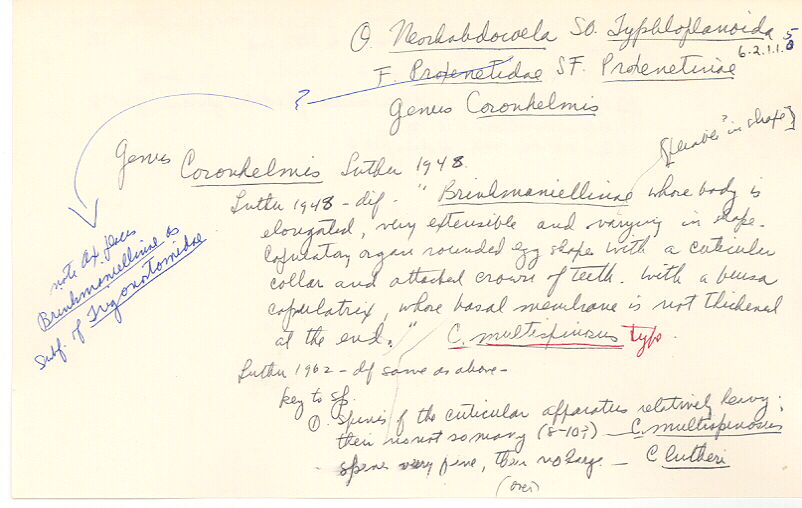 O. Neorhabdocoela SO. Typhloplanoida 5
6.2.1.1.8
F. Proxenetidae SF. Proxenetinae
?
Genus Coronhelmis
Genus Coronhelmis Luther 1948.
["variable" in shape]
Luther 1948 - dif - "Brinkmaniellinae whose body is
elongated, very extensible and varying in shape.
Copulatory organ rounded egg shape with a cuticular
collar and attached crown of teeth. With a bursa
copulatrix, whose basal membrane is not thickened
at the end." C. multispinosus type.
note Ax places
Brinkmaniellinae as
subf. of Trigonostomidae
Luther 1962 - df same as above -
key to sp.
1. spines of the cuticular apparatus relatively heavy;
their no not so many (8-10?) - C. multispinosus
spines very fine, their no large - C lutheri
(over)